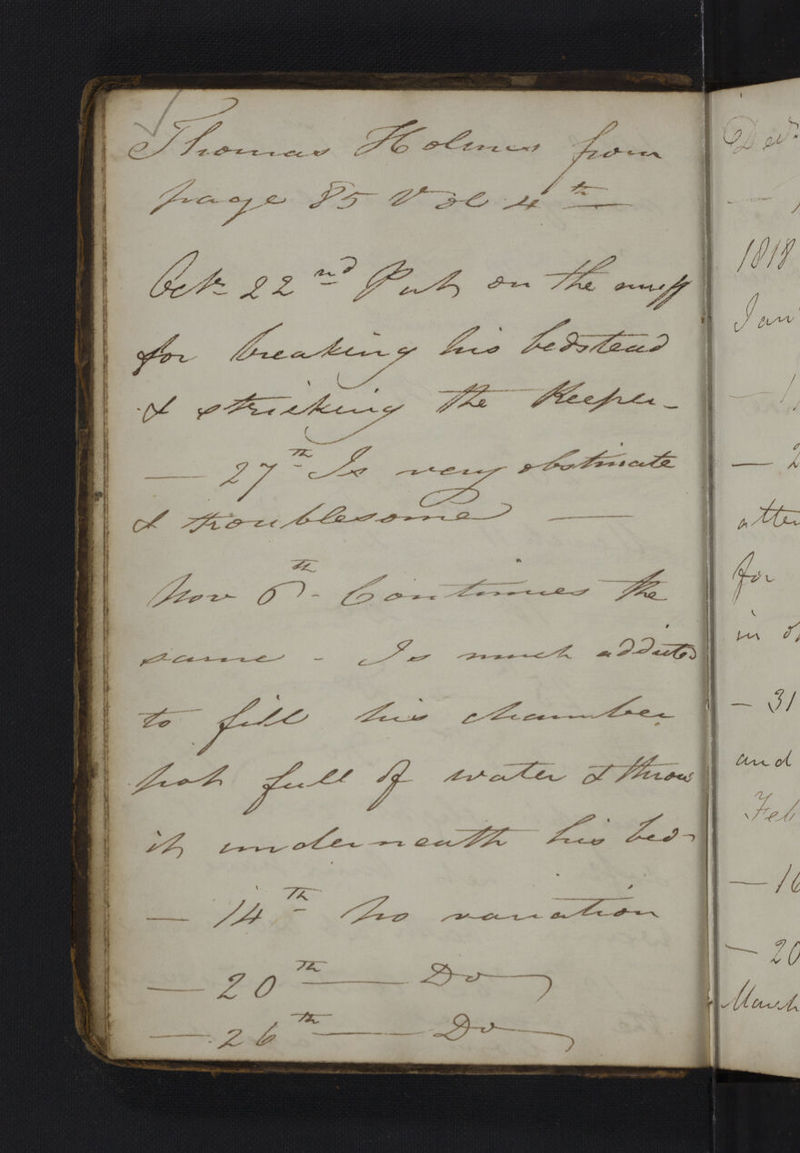 Thomas Holmes from
page 85 Vol 4th
Octr 22nd Put on the muff
for breaking his bedstead
& strieking the Keeper -
— 27th Is very obstinate
& troublesome —
Nov 6th - Continues the
same - Is much addicted
to fill his chamber
pot full of water & throw
it underneath his bed -
— 14th No variation
— 20th — Do
— 26th — Do
1818
Jan
— 2
atten
for
in
— 31
and
Feb
— 16
— 20
March